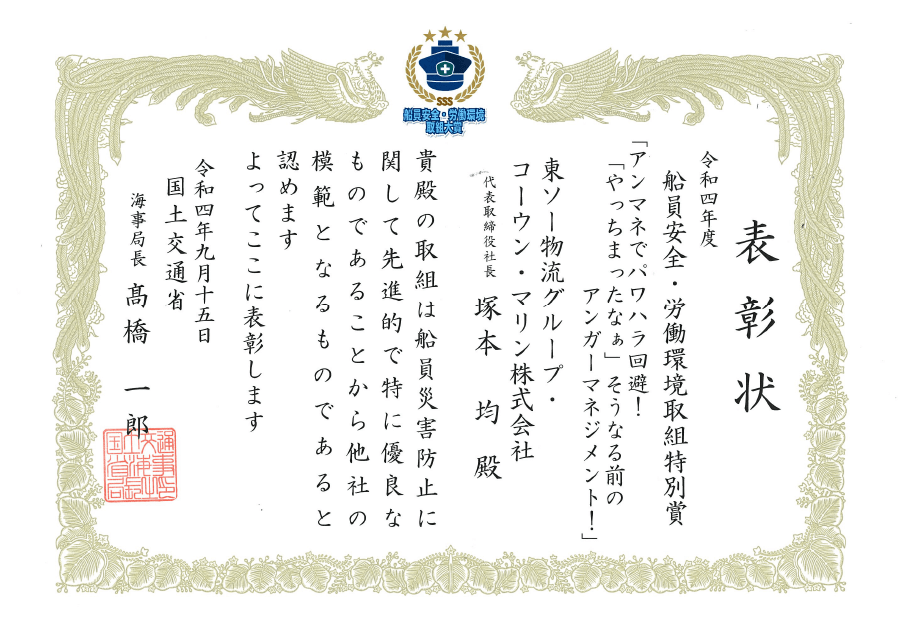 SSS
船員安全・労働環境
取組大賞
表彰状
令和四年度
船員安全・労働環境取組特別賞
「アンマネでパワハラ回避！
「やっちまったなぁ」そうなる前の
アンガーマネジメント！」
東ソー物流グループ・
コーウン・マリン株式会社
代表取締役社長 塚本 均 殿
貴殿の取組は船員災害防止に
関して先進的で特に優良な
ものであることから他社の
模範となるものであると
認めます
よってここに表彰します
令和四年九月十五日
国土交通省
海事局長 髙橋 一郎